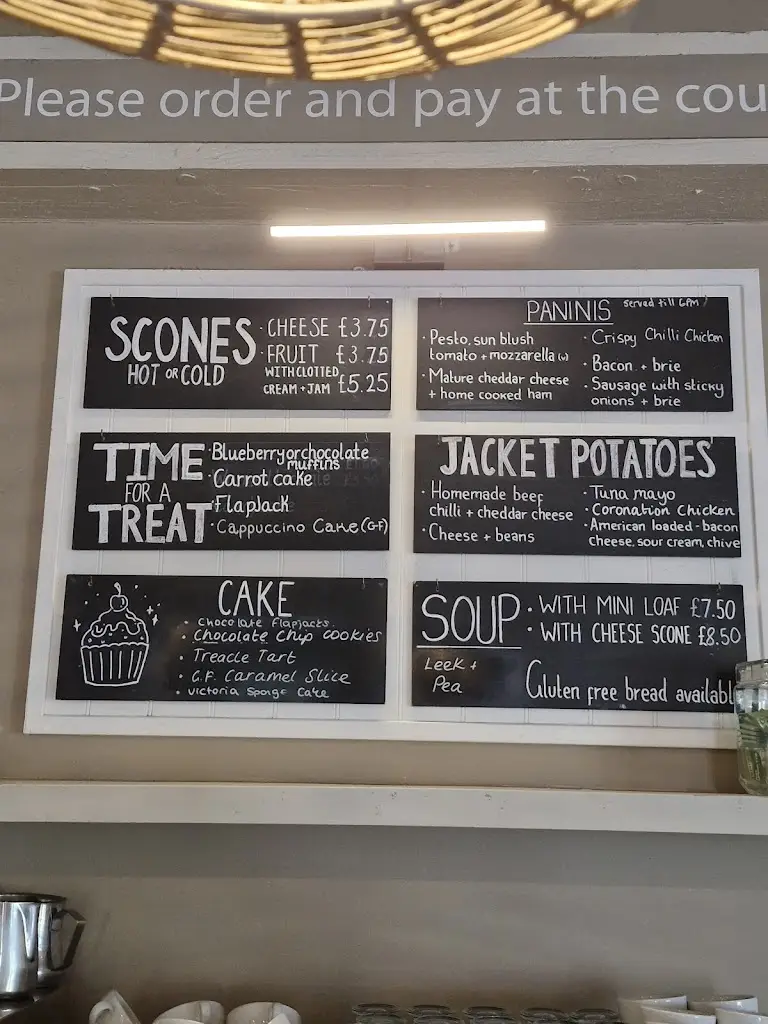 Please order and pay at the cou
SCONES
HOT OR COLD
· CHEESE £3.75
· FRUIT £3.75
WITH CLOTTED
CREAM + JAM £5.25
PANINIS served till 6PM
· Pesto, sun blush
tomato + mozzarella (v)
· Mature cheddar cheese
+ home cooked ham
· Crispy Chilli Chicken
· Bacon + brie
· Sausage with sticky
onions + brie
TIME
FOR A
TREAT
· Blueberry or chocolate
muffins
· Carrot cake
· Flapjack
· Cappuccino Cake (GF)
JACKET POTATOES
· Homemade beef
chilli + cheddar cheese
· Cheese + beans
· Tuna mayo
· Coronation Chicken
· American loaded - bacon
cheese, sour cream, chive
CAKE
· Chocolate Flapjacks.
· Chocolate Chip cookies
· Treacle Tart
· G.F. Caramel Slice
· Victoria Sponge Cake
SOUP
Leek +
Pea
· WITH MINI LOAF £7.50
· WITH CHEESE SCONE £8.50
Gluten free bread availabl